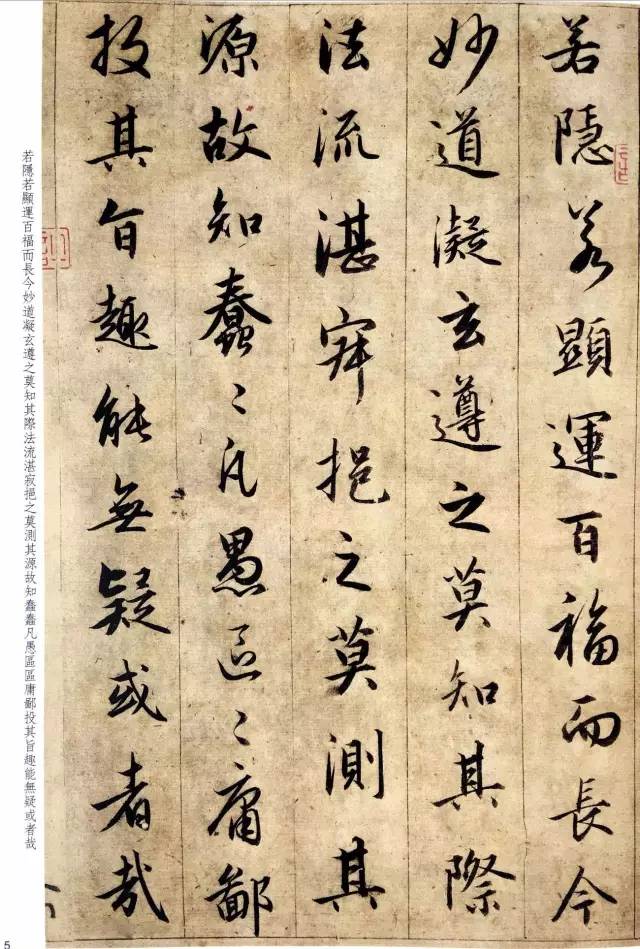 若隱若顯運百福而長今
妙道凝玄遵之莫知其際
法流湛寂挹之莫測其
源故知蠢〻凡愚區〻庸鄙
投其旨趣能無疑或者哉
若隱若顯運百福而長今妙道凝玄遵之莫知其際法流湛寂挹之莫測其源故知蠢蠢凡愚區區庸鄙投其旨趣能無疑或者哉
5